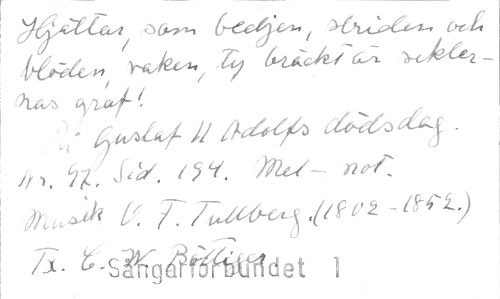 Hjältar, som bedjen, striden och
blöden, vaken, ty bräckt är sekler-
nas graf!
På Gustaf II Adolfs dödsdag.
Nr. 97. Sid. 194. Mel-not.
Musik V. T. Tullberg. (1802-1852.)
Tx. C. W. Böttiger.
Sångarförbundet 1